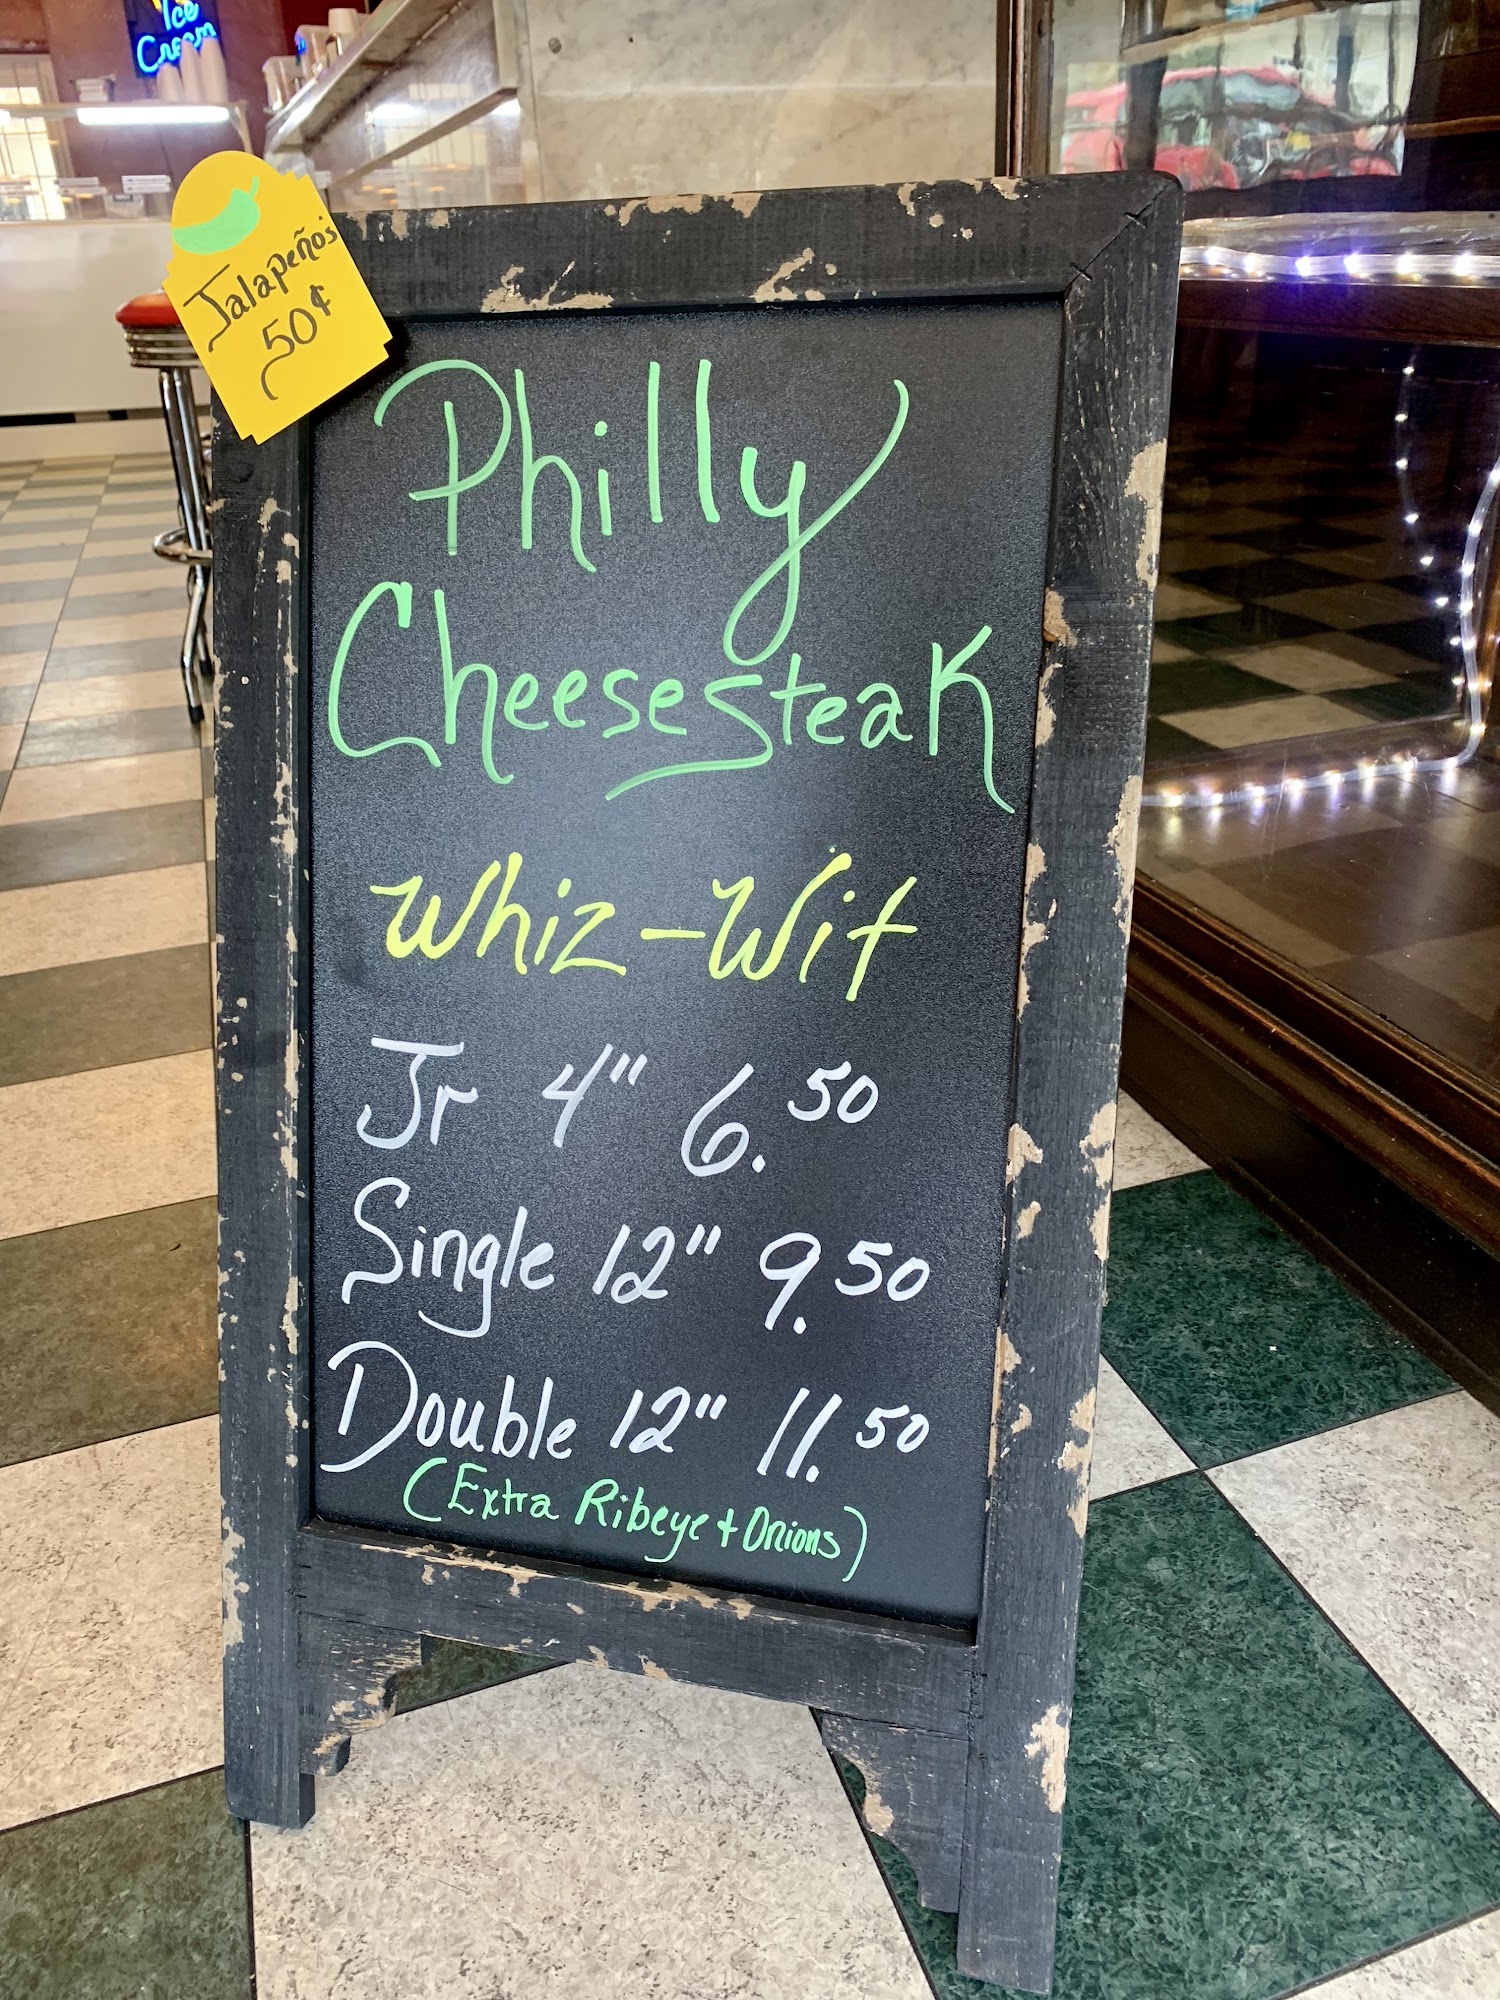 Ice
Cream
Jalapeños
50¢
Philly
Cheesesteak
Whiz-Wit
Jr 4" 6.50
Single 12" 9.50
Double 12" 11.50
(Extra Ribeye + Onions)